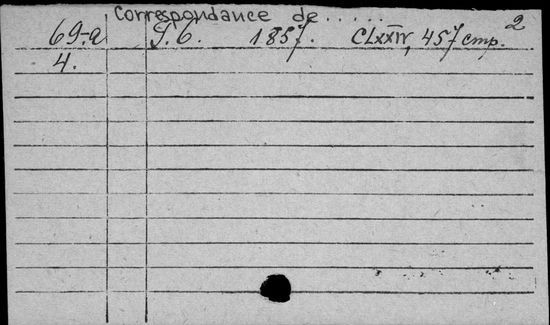 Correspondance de ......
2
69-a J. 6. 1857. CLXXIV, 457 стр.
4.